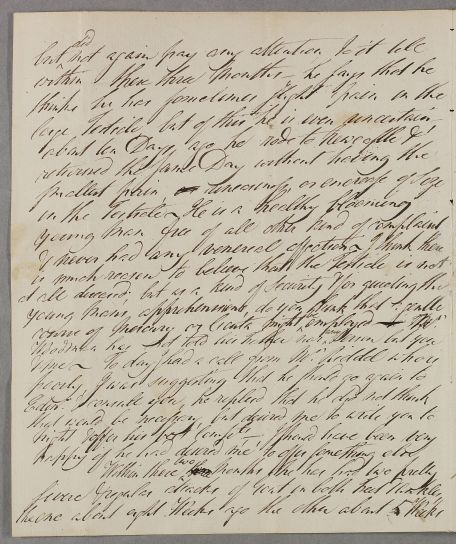 but did not again pay any attention to it till
within these three Months — he says that he
thinks he has sometimes slight pain in the
large Testicle but of this he is even uncertain
about ten Days ago he rode to Newcastle &
returned the same Day without having the
smallest pain or uneasiness or encrease of size
in the Testicle — He is a healthy blooming
young Man free of all other kind of complaint
& never had any venereal affection, I think there
is much reason to believe that the Testicle is not
at all diseased. but as a kind of security & for quieting the
young Mans apprehensions, do you think that a gentle
course of Mercury or Cicuta might be employed — Mr
Woodman has not told
time — To day I had a call from Mr Liddel who is
poorly, I was suggesting that he should go again to
Edinr. & consult you, he replied that he did not think
that would be necessary but desired me to write you to
night & offer his best Compts. I should have been very
happy if he had desired me to offer something else.
Within these two Months he has had two pretty
severe & regular attacks of Gout in both feet & ankles
the one about eight Weeks ago the other about 5 Weeks